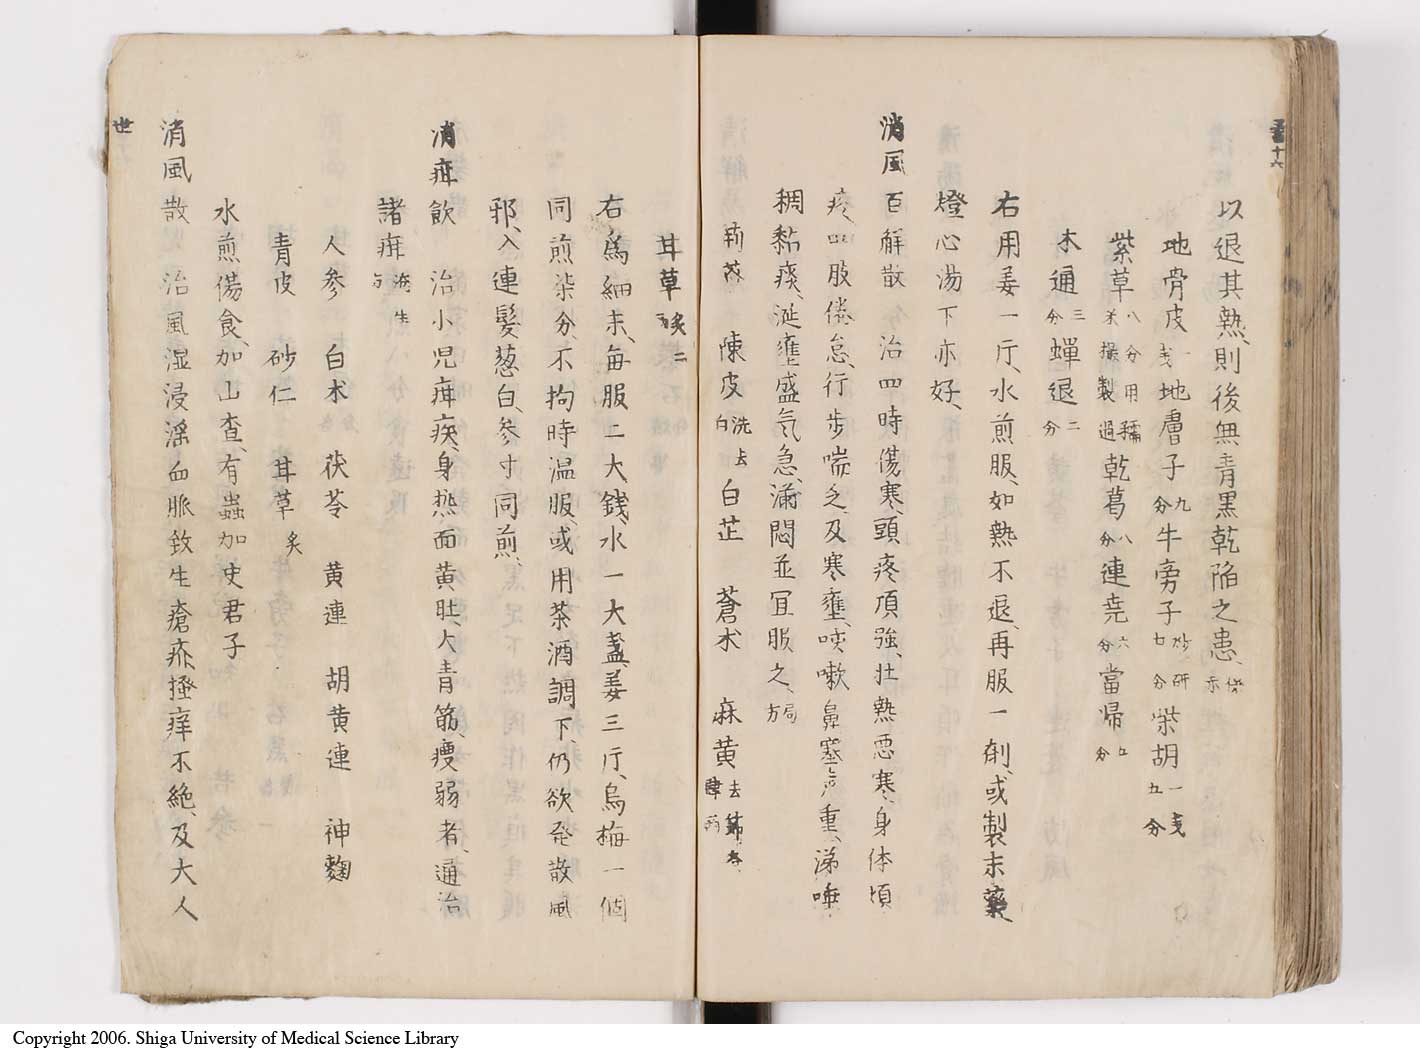 以退其熱、則後無青黒乾陥之患、
地骨皮 一戋 地膚子 九分 牛旁子 炒研七分 柴胡 一戋五分
紫草 八分用糯米撮製過 乾葛 八分 連尭 六分 當帰 五分
木通 三分 蟬退 二分
右用姜一斤、水煎服、如熱不退、再服一剤、或製末藥
燈心湯下亦好、
消風百解散 治四時傷寒、頭疼項強、壮熱悪寒、身体煩
疼、四股倦怠、行歩喘乏、及寒壅、咳嗽鼻塞声重、涕唾
稠黏、痰涎壅盛、气急、満悶、並冝服之、局方
荊芥 陳皮 洗去白 白芷 蒼术 麻黄 去節
甘草 炙二
右為細末、毎服二大銭、水一大盞、姜三斤、烏梅一個
同煎柒分、不拘時温服、或用茶酒調下、仍欲発散風
邪、入連髪葱白、参寸同煎、
消疳飲 治小児疳疾、身热面黄肚大青筋、痩弱者、通治
諸疳
人参 白术 茯苓 黄連 胡黄連 神麴
青皮 砂仁 甘草 炙
水煎傷食、加山査、有蟲加史君子
消風散 治風湿浸淫血脈致生瘡疥、搔痒不絶、及大人
世